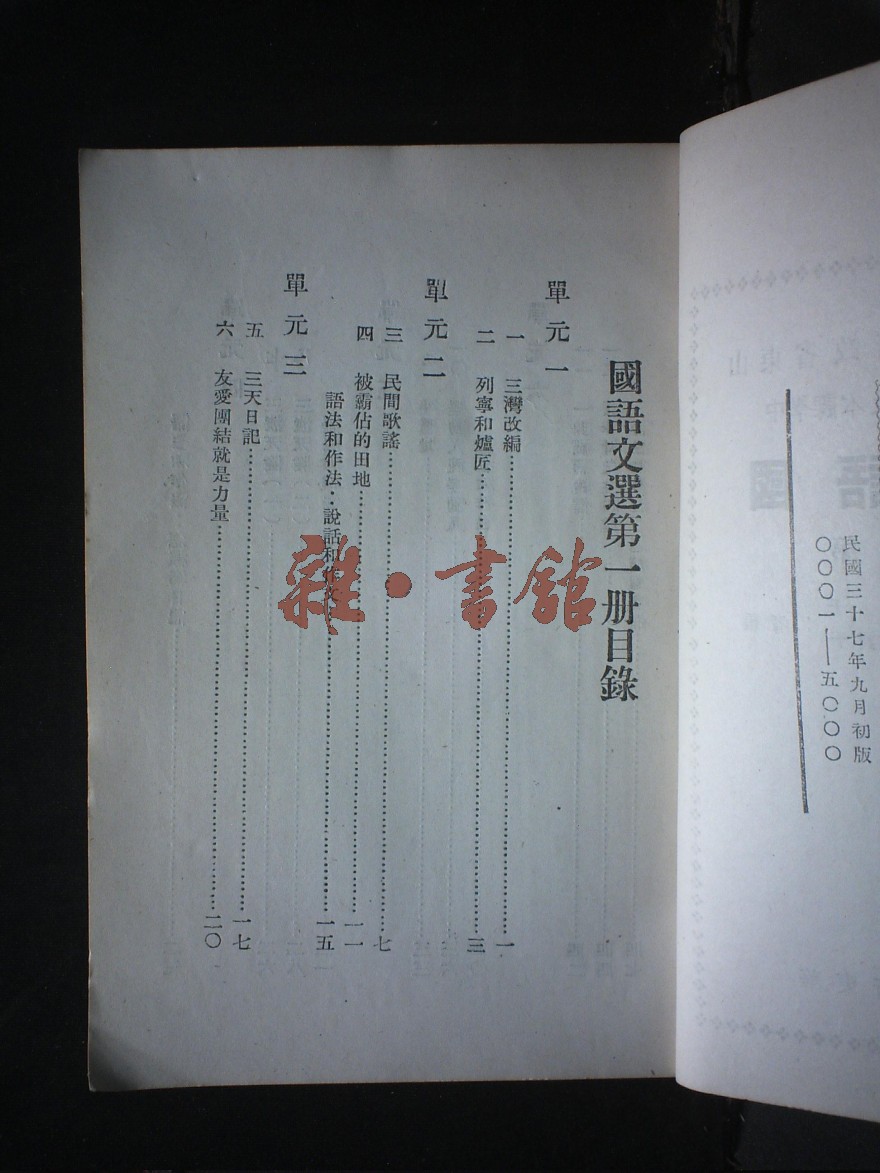 民國三十七年九月初版
〇〇〇一——五〇〇〇
國語文選第一册目錄
單元一
一 三灣改編……一
二 列寧和爐匠……三
單元二
三 民間歌謠……七
四 被霸佔的田地……一一
語法和作法：說話和作文……一五
單元三
五 三天日記……一七
六 友愛團結就是力量……二〇
雜·書館